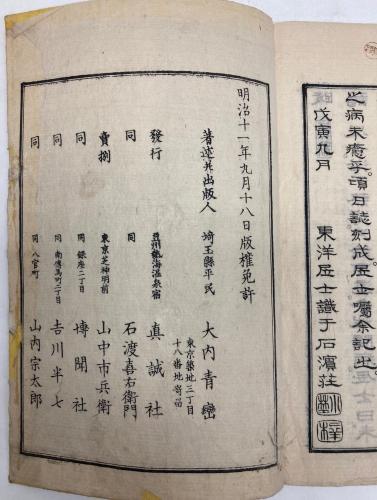 之病未癒乎頃日誌刻成居士囑余記出
戊寅九月　東洋居士識于石濱莊
明治十一年九月十八日版權免許
著述兼出版人　埼玉縣平民　大内青巒
東京築地二丁目
十八番地寄留
發行　豆州熱海温泉宿　眞誠社
同　同　石渡喜右衛門
賣捌　東京芝神明前　山中市兵衛
同　同銀座二丁目　博聞社
同　同南傳馬町二丁目　吉川半七
同　同八官町　山内宗太郎